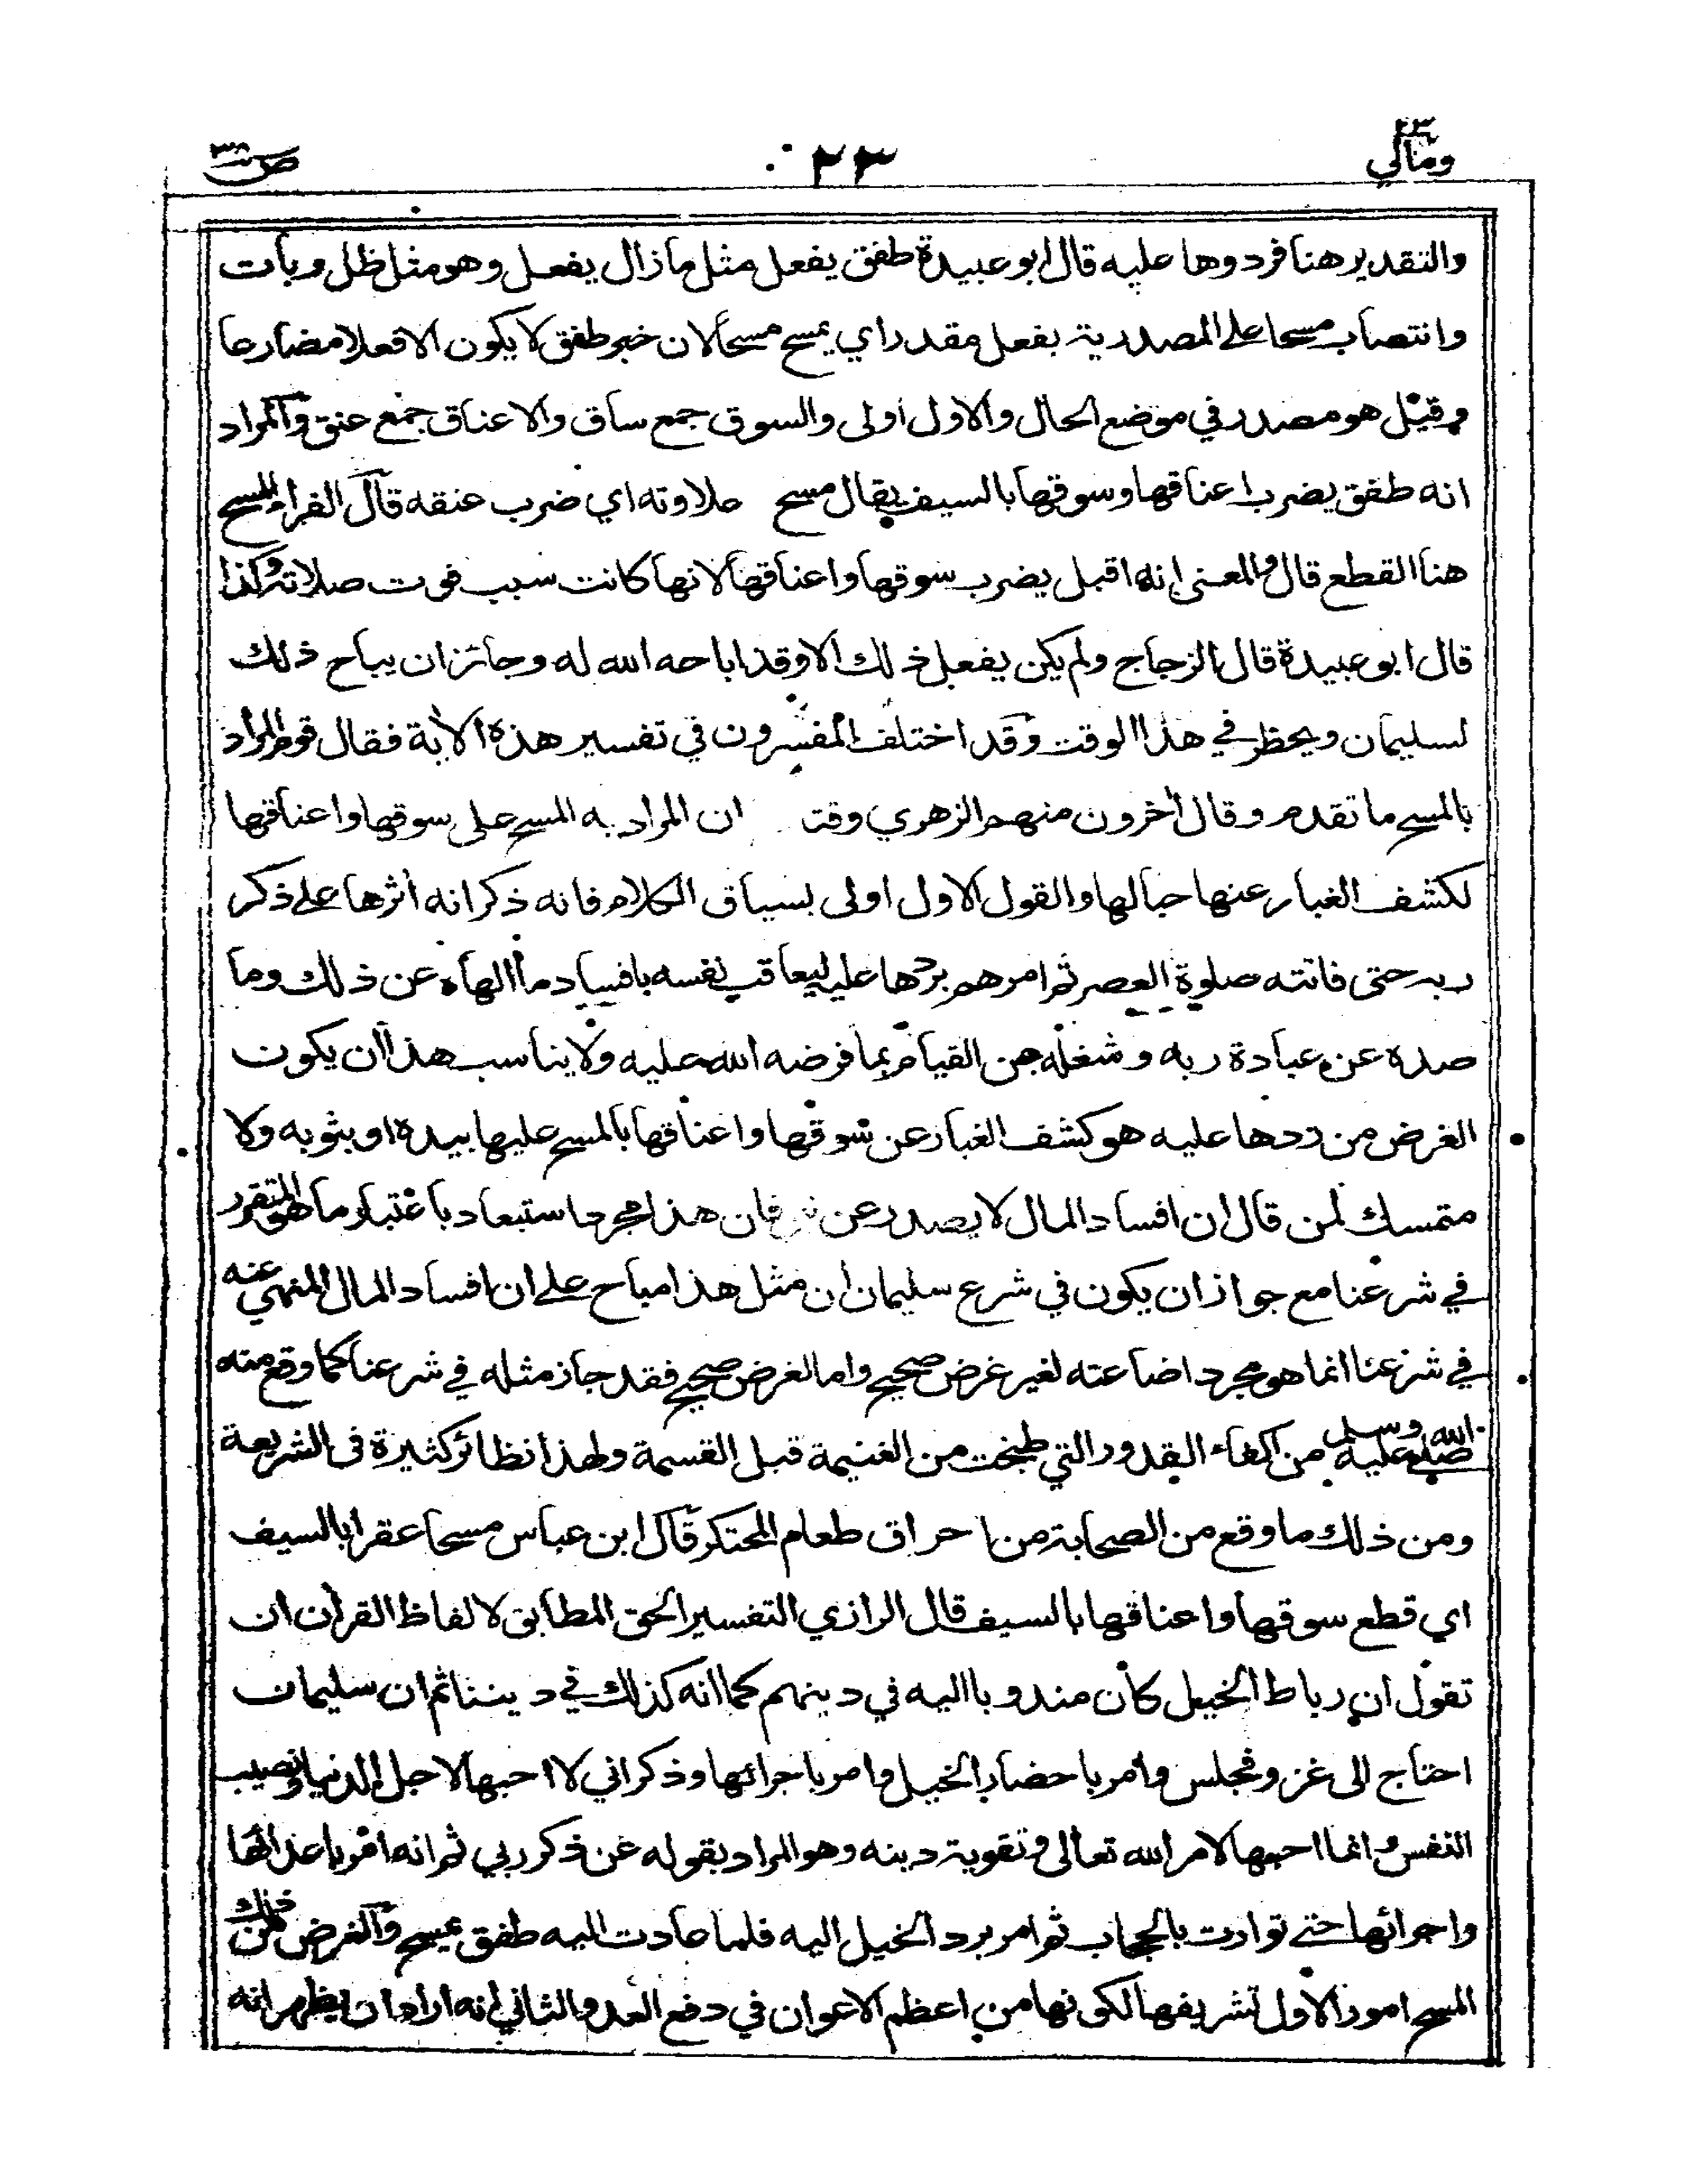 ومالي ٢٣
٢٣
ص ٣٨
والتقدير هنا فردوها عليه قال ابو عبيدة طفق يفعل مثل مازال يفعل وهو مثل ظل وبات
وانتصاب مسحا على المصدرية بفعل مقدر اي يمسح مسحا لان خبر طفق لا يكون الا فعلا مضارعا
وقيل هو مصدر في موضع الحال والاول اولى والسوق جمع ساق والاعناق جمع عنق والمراد
انه طفق يضرب اعناقها وسوقها بالسيف يقال مسح علاوته اي ضرب عنقه قال الفراء المسح
هنا القطع قال والمعنى انه اقبل يضرب سوقها واعناقها لانها كانت سبب فوت صلاته وكذا
قال ابو عبيدة قال الزجاج ولم يكن يفعل ذلك الا وقد اباحه الله له وجائز ان يباح ذلك
لسليمان ويحظر في هذا الوقت وقد اختلف المفسرون في تفسير هذه الآية فقال قوم المراد
بالمسح ما تقدم وقال آخرون منهم الزهري وقت ان المراد به المسح على سوقها واعناقها
لكشف الغبار عنها حبا لها والقول الاول اولى بسياق الكلام فانه ذكر انه آثرها على ذكر
ربه حتى فاتته صلوة العصر ثم امرهم بردها عليه ليعاقب نفسه بافساد ما الهاه عن ذلك وما
صده عن عبادة ربه وشغله عن القيام بما فرضه الله عليه ولا يناسب هذا ان يكون
الغرض من ردها عليه هو كشف الغبار عن سوقها واعناقها بالمسح عليها بيده او بثوبه ولا
متمسك لمن قال ان افساد المال لا يصدر عن فان هذا مجرد استبعاد باعتبار ما هو المتقرر
في شرعنا مع جواز ان يكون في شرع سليمان ان مثل هذا مباح على ان افساد المال المنهي عنه
في شرعنا انما هو مجرد اضاعته لغير غرض صحيح واما لغرض صحيح فقد جاز مثله في شرعنا كما وقع منه
صلى الله عليه وسلم من اكفاء القدور التي طبخت من الغنيمة قبل القسمة ولهذا نظائر كثيرة في الشريعة
ومن ذلك ما وقع من الصحابة من احراق طعام المحتكر قال ابن عباس مسحا عقرا بالسيف
اي قطع سوقها واعناقها بالسيف قال الرازي التفسير الحق المطابق لالفاظ القرآن ان
تقول ان رباط الخيل كان مندوبا اليه في دينهم كما انه كذلك في ديننا ثم ان سليمان
احتاج الى غزو فجلس وامر باحضار الخيل وامر باجرائها وذكر اني لا احبها لاجل الدنيا ونصيب
النفس وانما احبها لامر الله تعالى وتقوية دينه وهو المراد بقوله عن ذكر ربي ثم انه امر باعدائها
واجرائها حتى توارت بالحجاب ثم امر برد الخيل اليه فلما عادت اليه طفق يمسح والغرض من ذلك
المسح امور الاول تشريفها لكونها من اعظم الاعوان في دفع العدو والثاني انه اراد ان يظهر انه